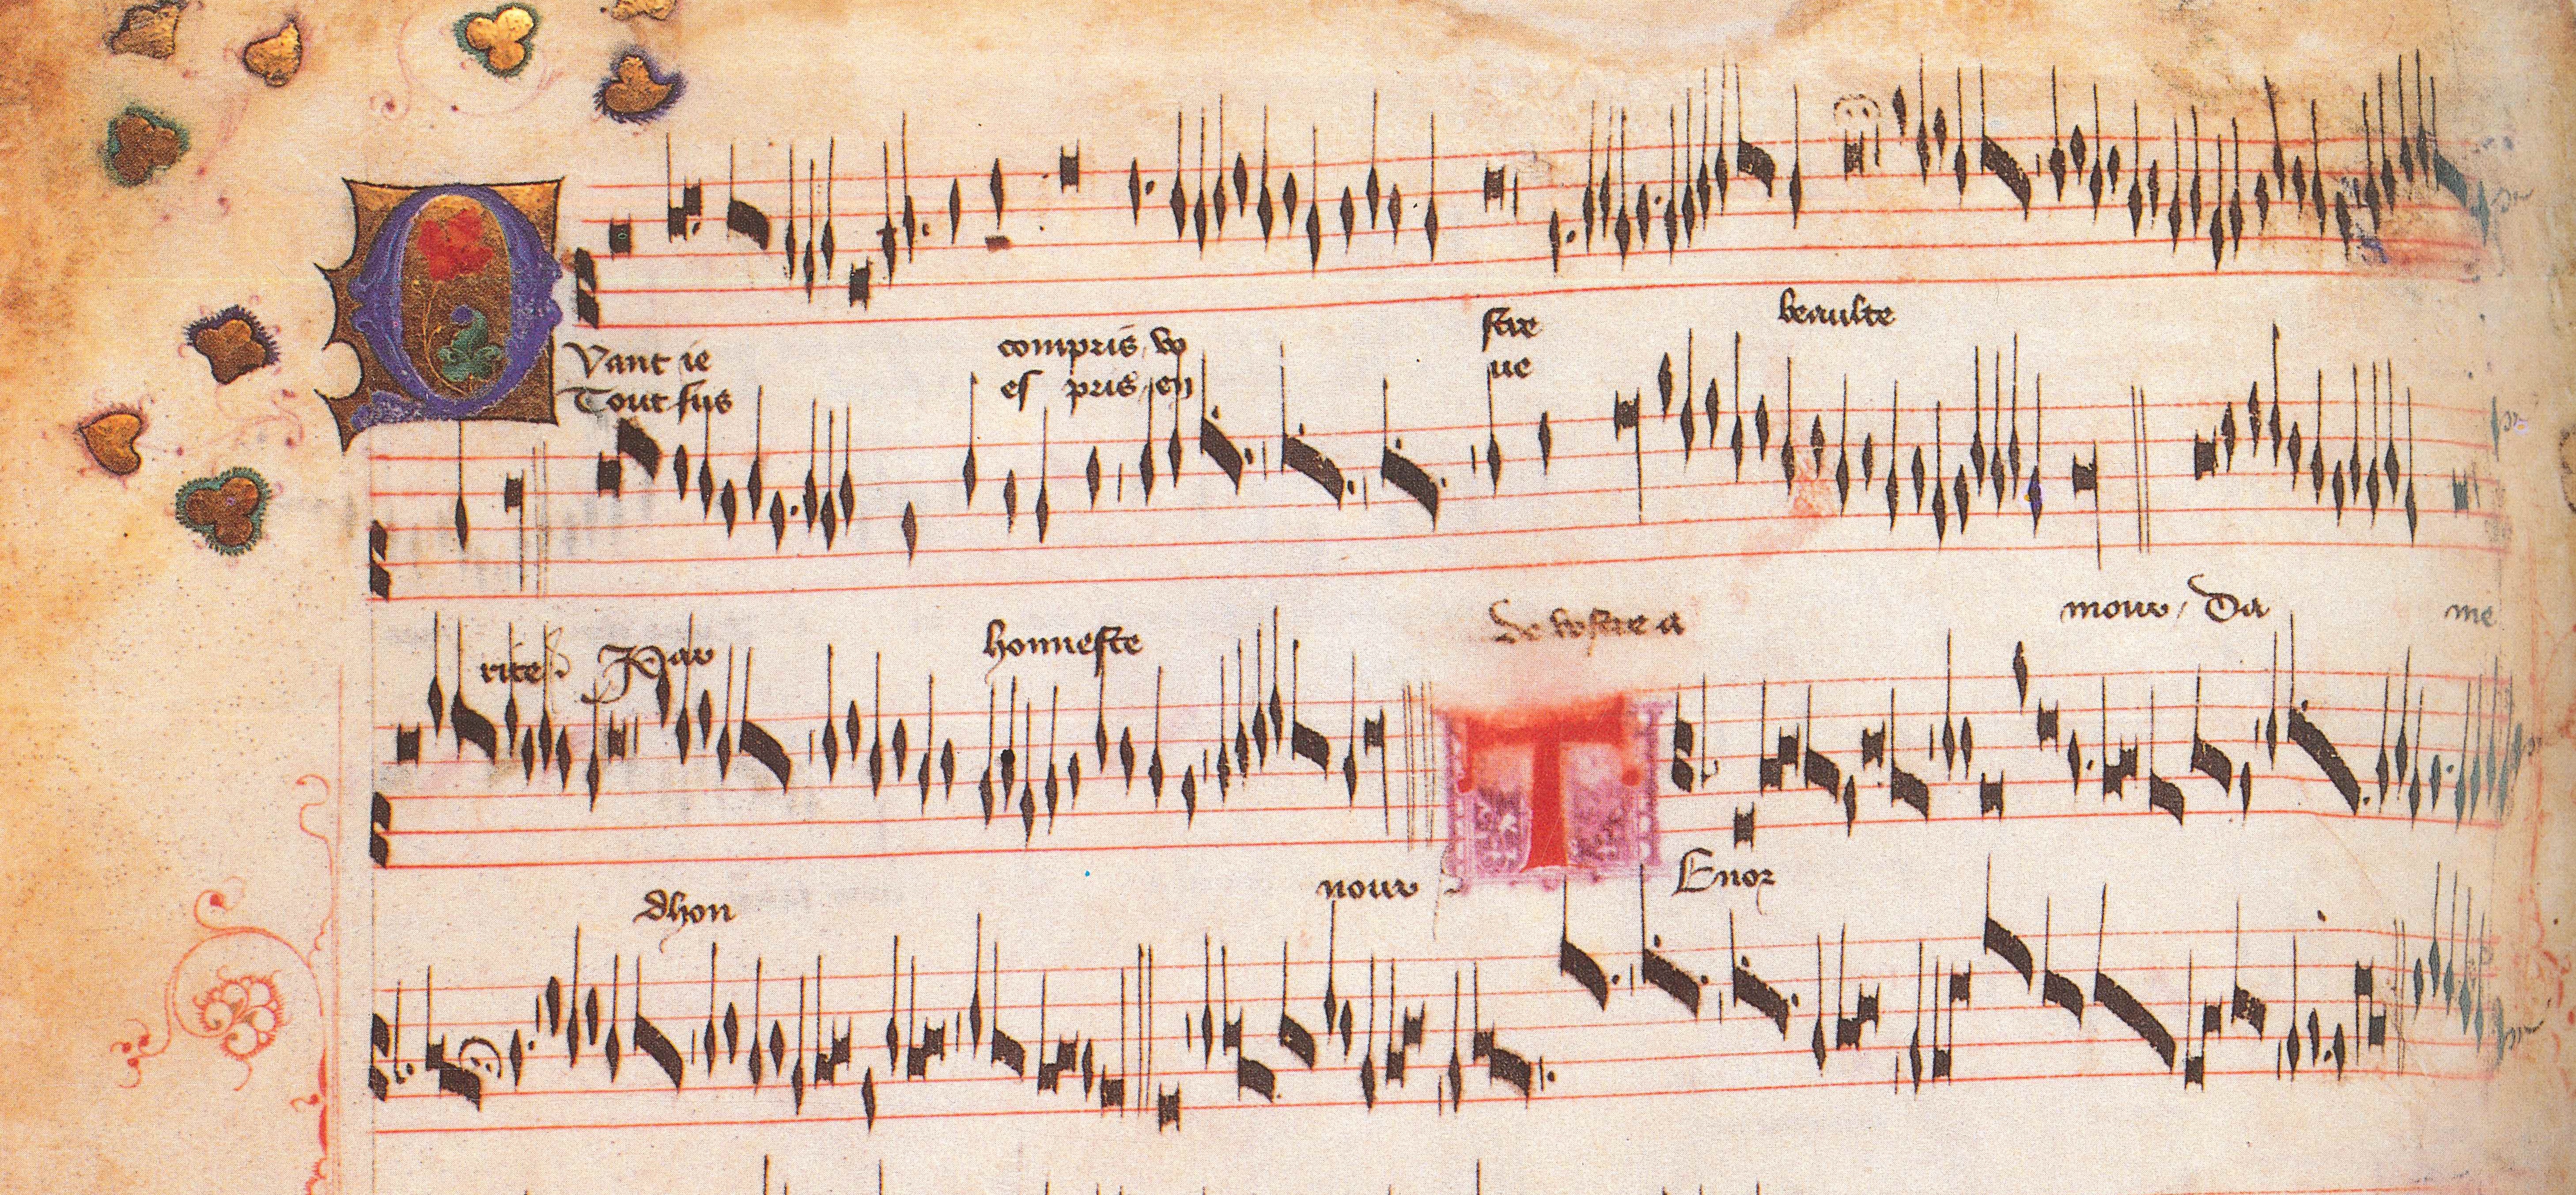 QVant ie compris, vo stre beaulte
Tout sus es pris, en ue
rite Par honneste de vostre a mour, Da me
dhon nour TEnor